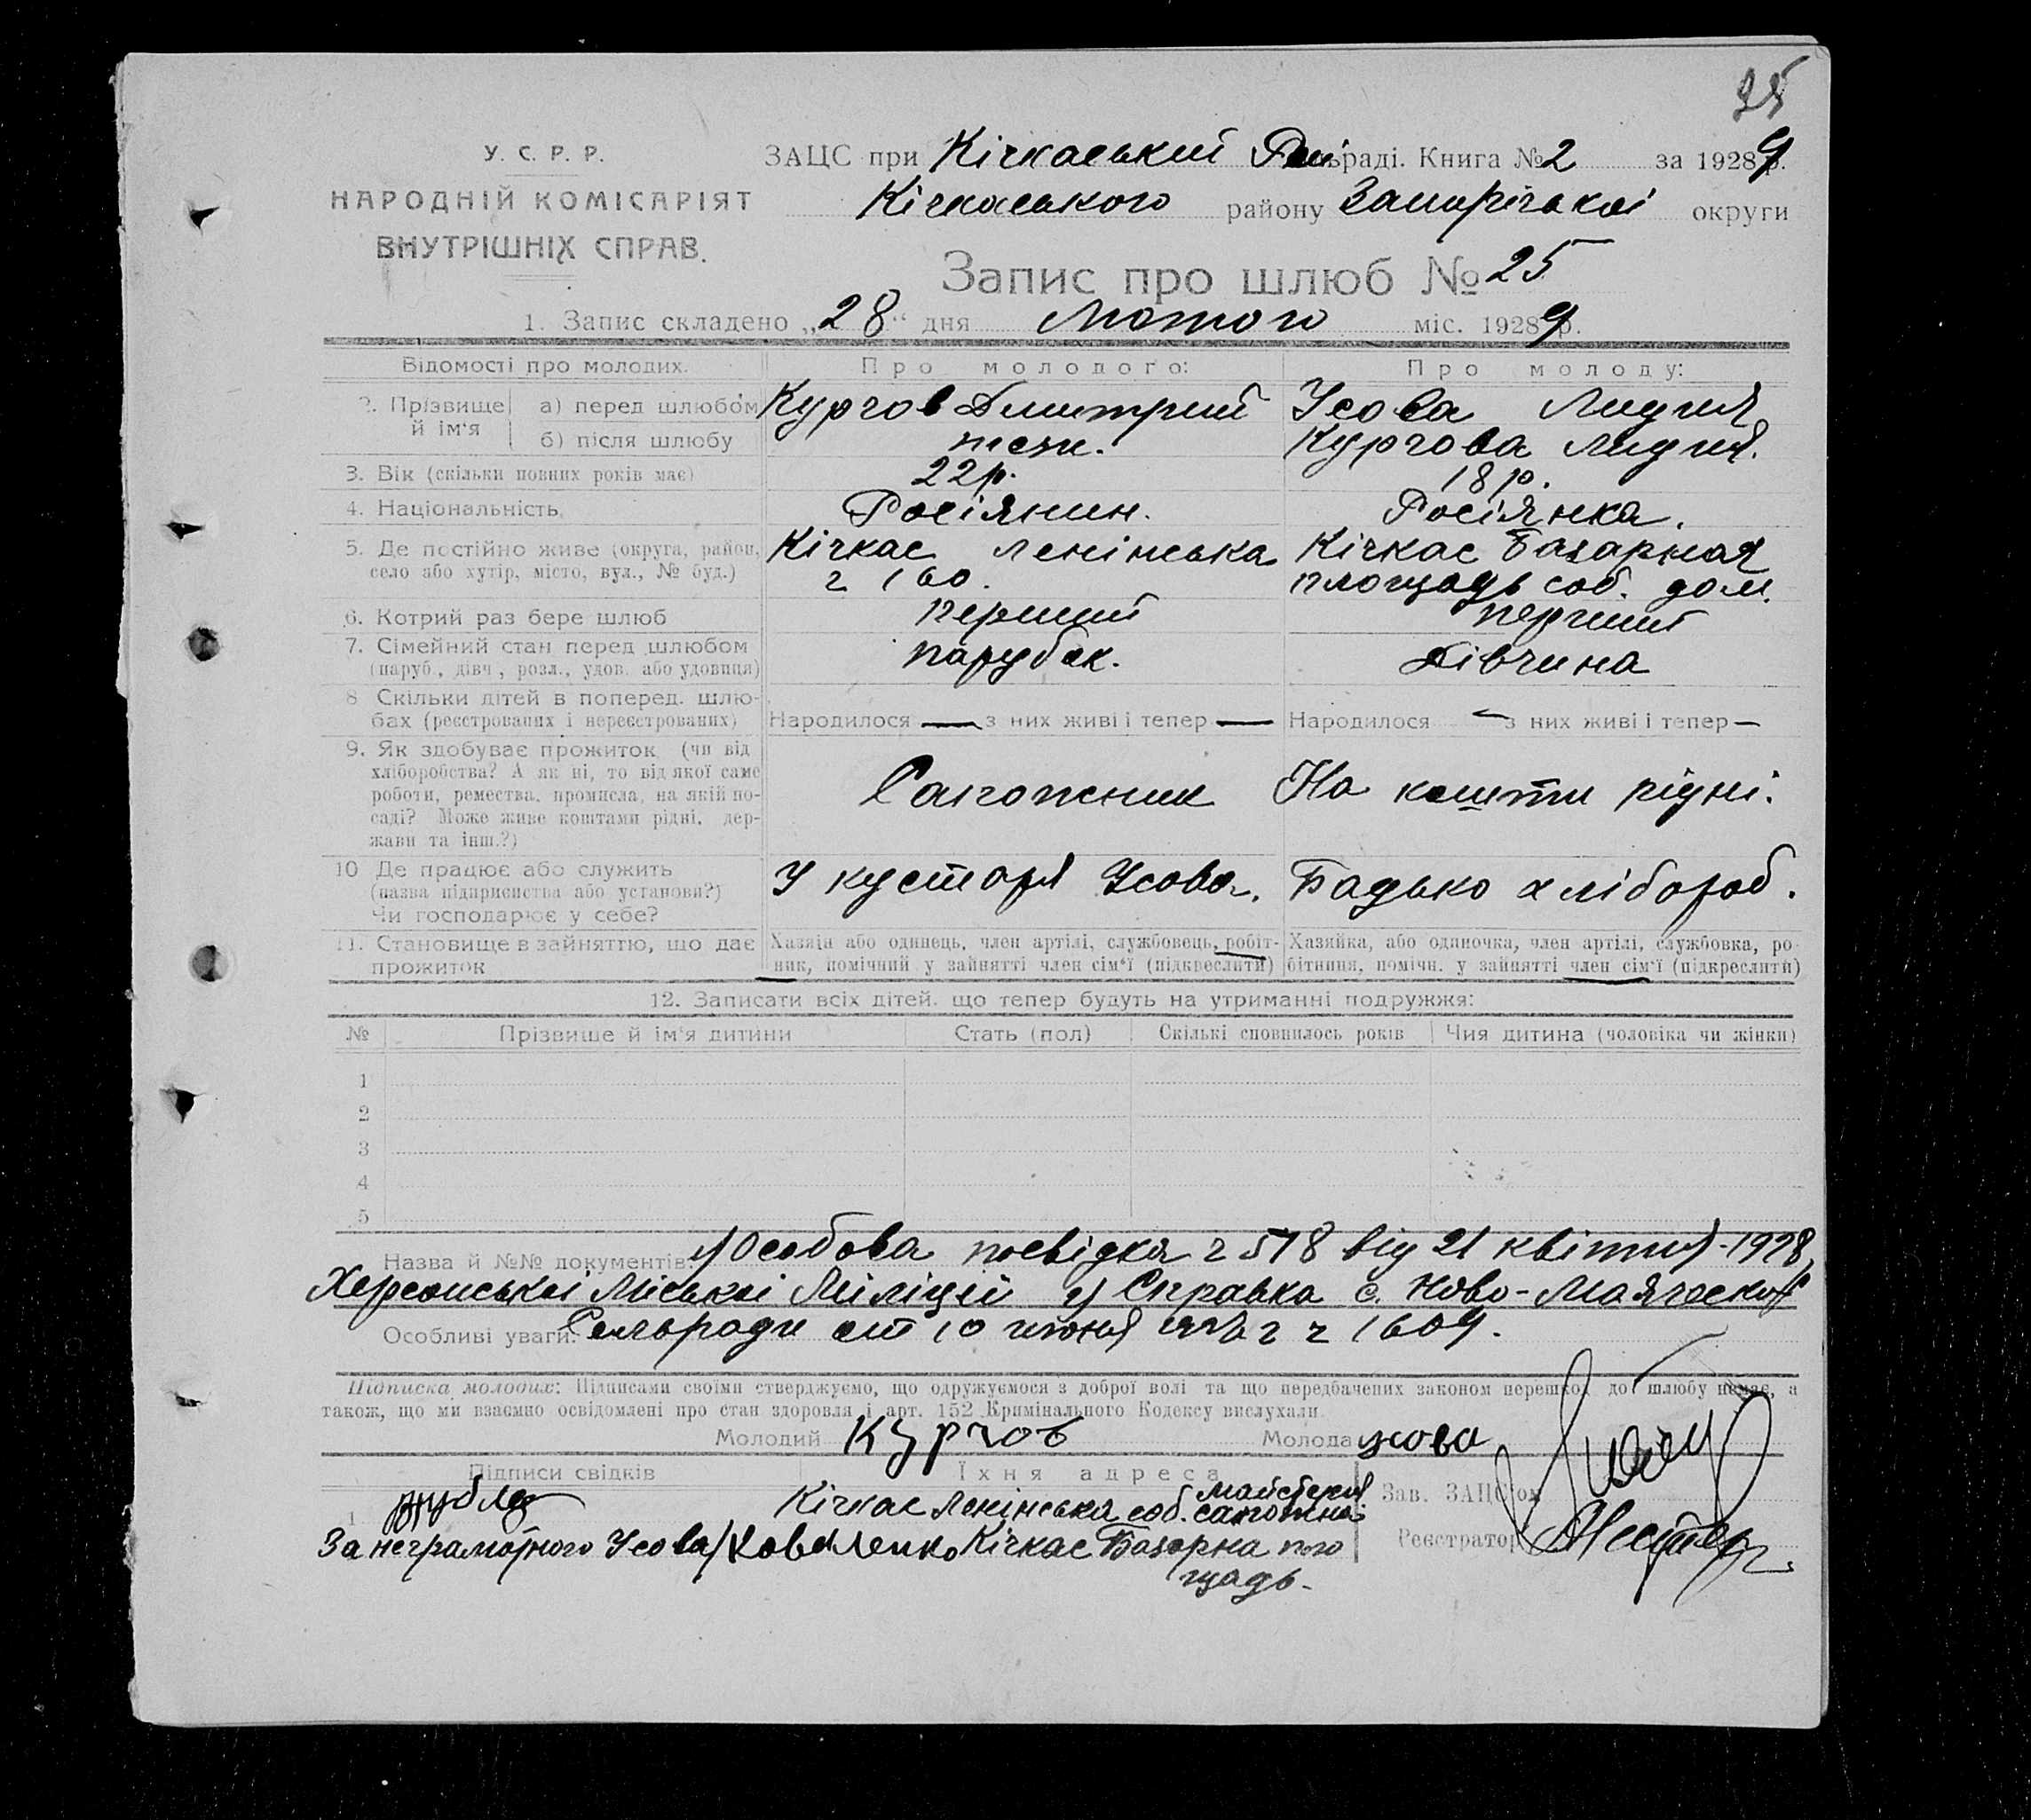 25
У. С. Р. Р.
НАРОДНІЙ КОМІСАРІЯТ
ВНУТРІШНІХ СПРАВ.
ЗАЦС при Кічкаський Рай раді. Книга № 2 за 1929 р.
Кічкаського району Запорізької округи
Запис про шлюб № 25
1. Запис складено „28“ дня Лютого міс. 1929 р.
Відомості про молодих. Про молодого: Про молоду:
2. Прізвище й ім'я а) перед шлюбом Кургов Дмитрий Усова Лидия
б) після шлюбу теж. Кургова Лидия.
3. Вік (скільки повних років має) 22 р. 18 р.
4. Національність Росіянин. Росіянка.
5. Де постійно живе (округа, район, Кічкас Ленінська Кічкас Базарная
село або хутір, місто, вул., № буд.) ч 160. площадь соб. дом.
6. Котрий раз бере шлюб перший перший
7. Сімейний стан перед шлюбом парубок. Дівчина
(паруб., дівч., розл., удов. або удовиця)
8 Скільки дітей в поперед. шлю-
бах (реєстрованих і нереєстрованих) Народилося — з них живі і тепер — Народилося — з них живі і тепер —
9. Як здобуває прожиток (чи від
хліборобства? А як ні, то від якої саме
роботи, ремества, промисла, на якій по- Сапожник На кошти рідні.
саді? Може живе коштами рідні, дер-
жави та інш.?)
10 Де працює або служить У кустаря Усова. Батько хлібороб.
(назва підприємства або установи?)
Чи господарює у себе?
11. Становище в зайняттю, що дає Хазяїн або одинець, член артілі, службовець, робіт- Хазяйка, або одиночка, член артілі, службовка, ро-
прожиток ник, помічний у зайнятті член сім'ї (підкреслити) бітниця, помічн. у зайнятті член сім'ї (підкреслити)
12. Записати всіх дітей, що тепер будуть на утриманні подружжя:
№ Прізвище й ім'я дитини Стать (пол) Скількі сповнилось років Чия дитина (чоловіка чи жінки)
1
2
3
4
5
Назва й №№ документів: 1) Особова посвідка ч 578 від 21 квітня 1928,
Херсонської Міської Міліції 2) Справка с. Ново-Маячской
Особливі уваги: Сельради от 10 июня г ч 1609.
Підписка молодих: Підписами своїми стверджуємо, що одружуємося з доброї волі та що передбачених законом перешкод до шлюбу немає, а
також, що ми взаємно освідомлені про стан здоровля і арт. 152 Кримінального Кодексу вислухали.
Молодий Кургов Молода усова
Підписи свідків Їхня адреса
1 Кічкас Ленінська соб. майстерня сапожна
За неграмотного Усова/Коваленко Кічкас Базарна пло
щадь.
Зав. ЗАЦС'ом
Реєстратор